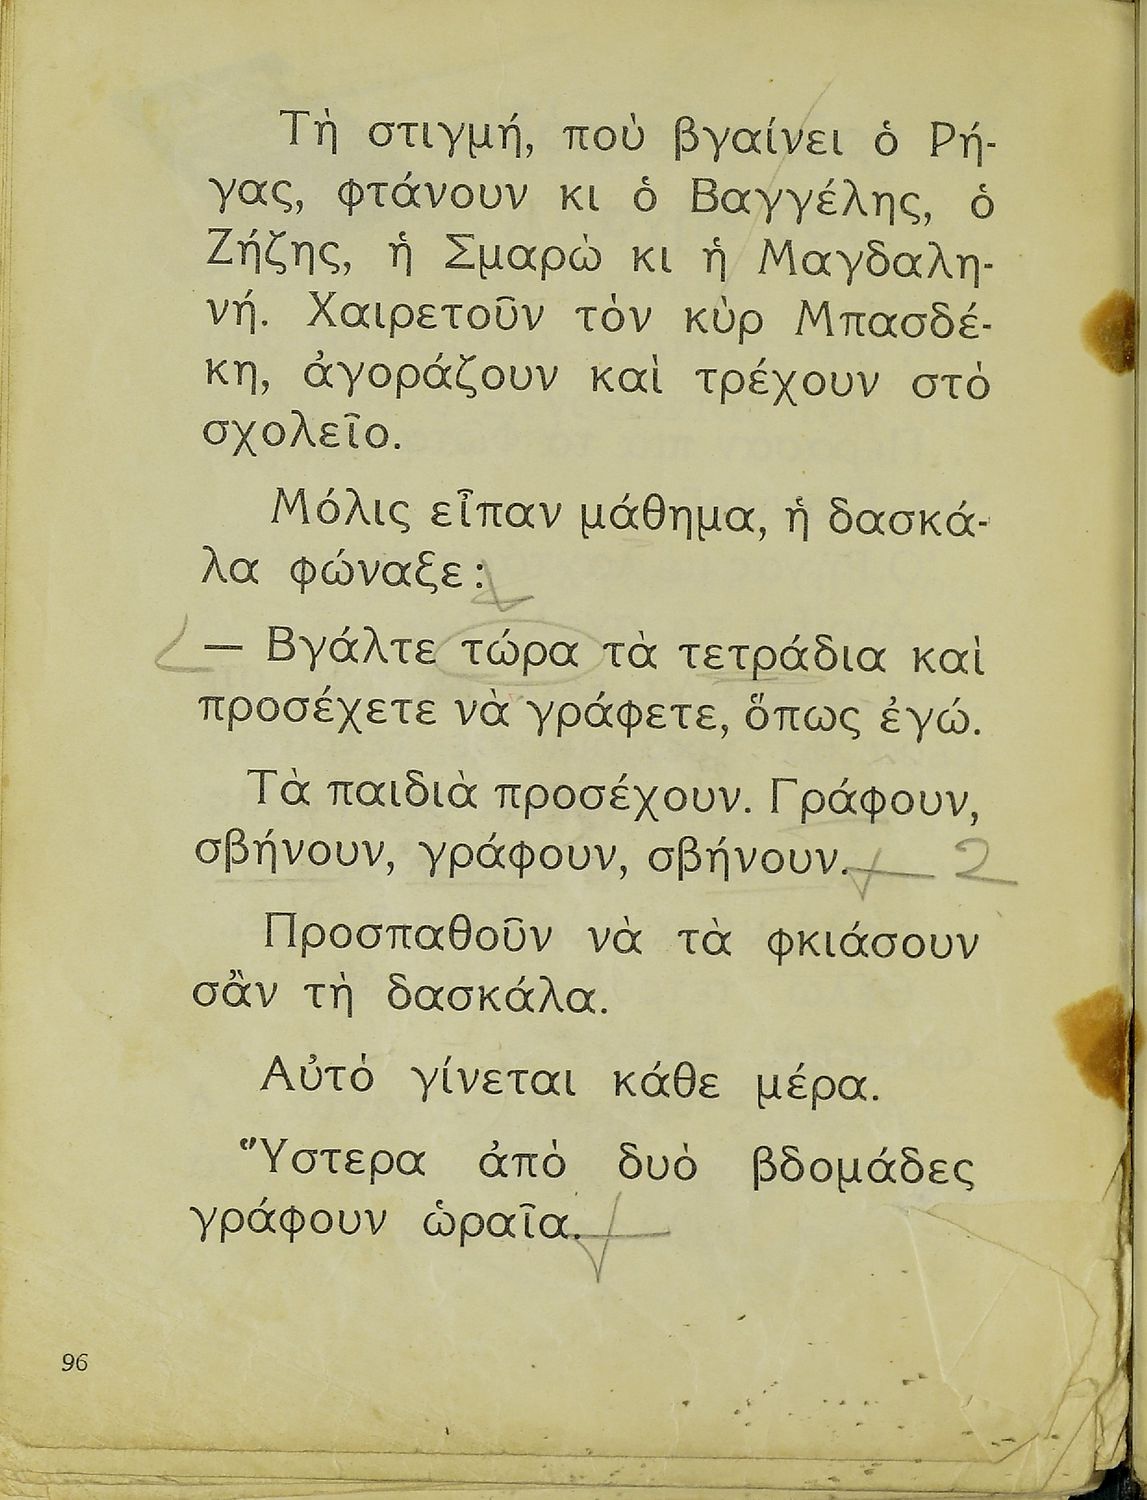 Τὴ στιγμή, ποὺ βγαίνει ὁ Ρή-
γας, φτάνουν κι ὁ Βαγγέλης, ὁ
Ζήζης, ἡ Σμαρὼ κι ἡ Μαγδαλη-
νή. Χαιρετοῦν τὸν κὺρ Μπασδέ-
κη, ἀγοράζουν καὶ τρέχουν στὸ
σχολεῖο.
Μόλις εἶπαν μάθημα, ἡ δασκά-
λα φώναξε:
— Βγάλτε τώρα τὰ τετράδια καὶ
προσέχετε νὰ γράφετε, ὅπως ἐγώ.
Τὰ παιδιὰ προσέχουν. Γράφουν,
σβήνουν, γράφουν, σβήνουν. 2
Προσπαθοῦν νὰ τὰ φκιάσουν
σἂν τὴ δασκάλα.
Αὐτὸ γίνεται κάθε μέρα.
Ὕστερα ἀπὸ δυὸ βδομάδες
γράφουν ὡραῖα.
96